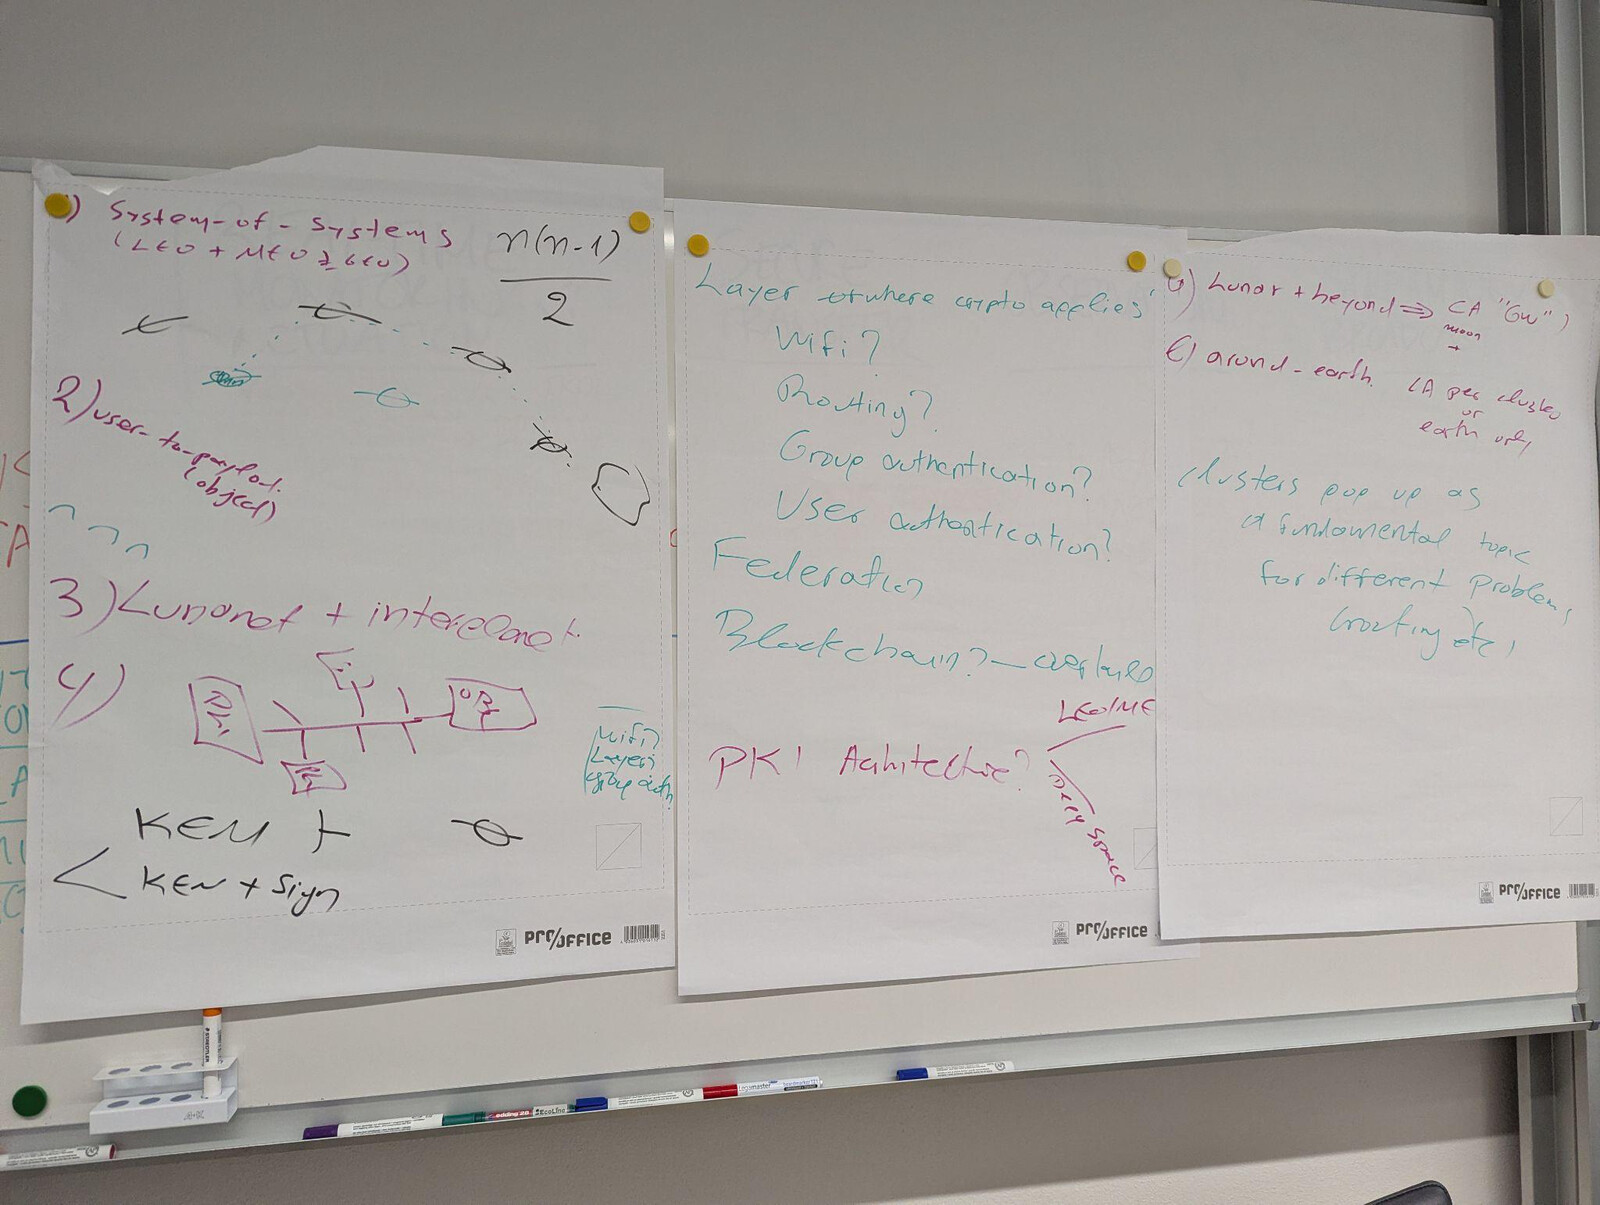 1) System-of-Systems
(LEO + MEO ± GEO)
n(n-1)
2
2) user-to-
(object)
3) Lunanet +
4)
Wifi?
Layer?
KEM +
KEM + Sign
PRO/OFFICE
Layer where crypto applies
Wifi?
Routing?
Group authentication?
User authentication?
Federation
Blockchain? —
LEO/ME
PKI Achitecture?
Deep Space
PRO/OFFICE
Lunar + beyond ⇒ CA "GW")
moon
+
around-earth. CA per cluster
or
earth only
Clusters pop up as
a fundamental topic
for different problems
PRO/OFFICE
EcoLine